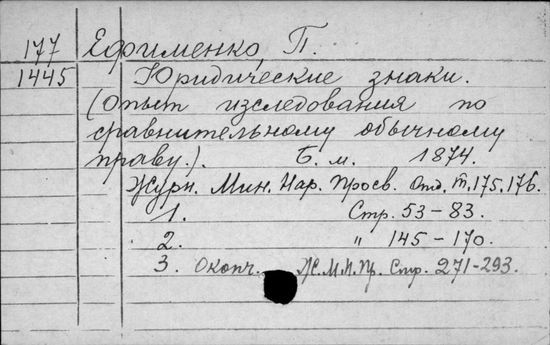 177 Ефименко, П.
1445 Юридические знаки.
(Опыт изследования по
сравнительному обычному
праву.). Б. м. 1874.
Журн. Мин. Нар. Просв. Отд. т. 175, 176.
1. Стр. 53-83.
2. " 145-170.
3. Оконч. Ж.М.Н.Пр. Стр. 271-293.